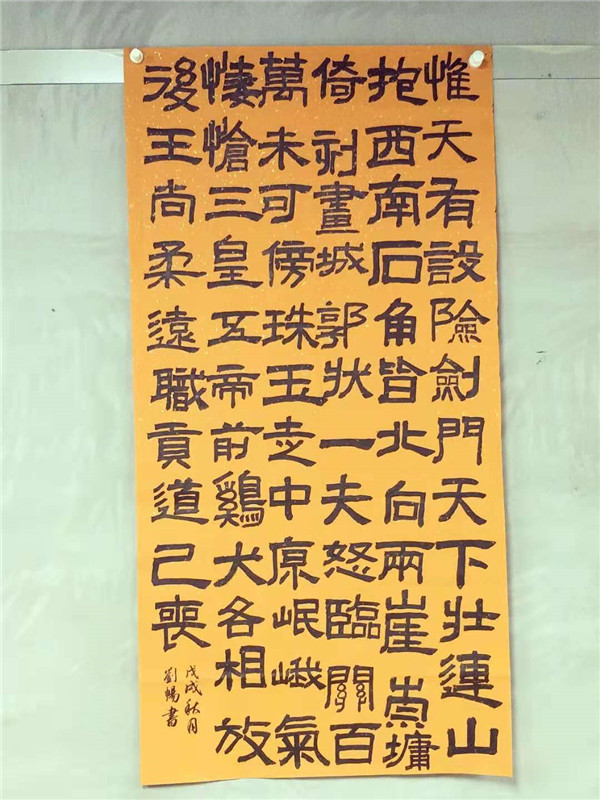 惟天有設險劍門天下壯連山
抱西南石角皆北向兩崖崇墉
倚刻畫城郭狀一夫怒臨關百
萬未可傍珠玉走中原岷峨氣
悽愴三皇五帝前鷄犬各相放
後王尚柔遠職貢道已喪
戊戌秋月
劉暢書